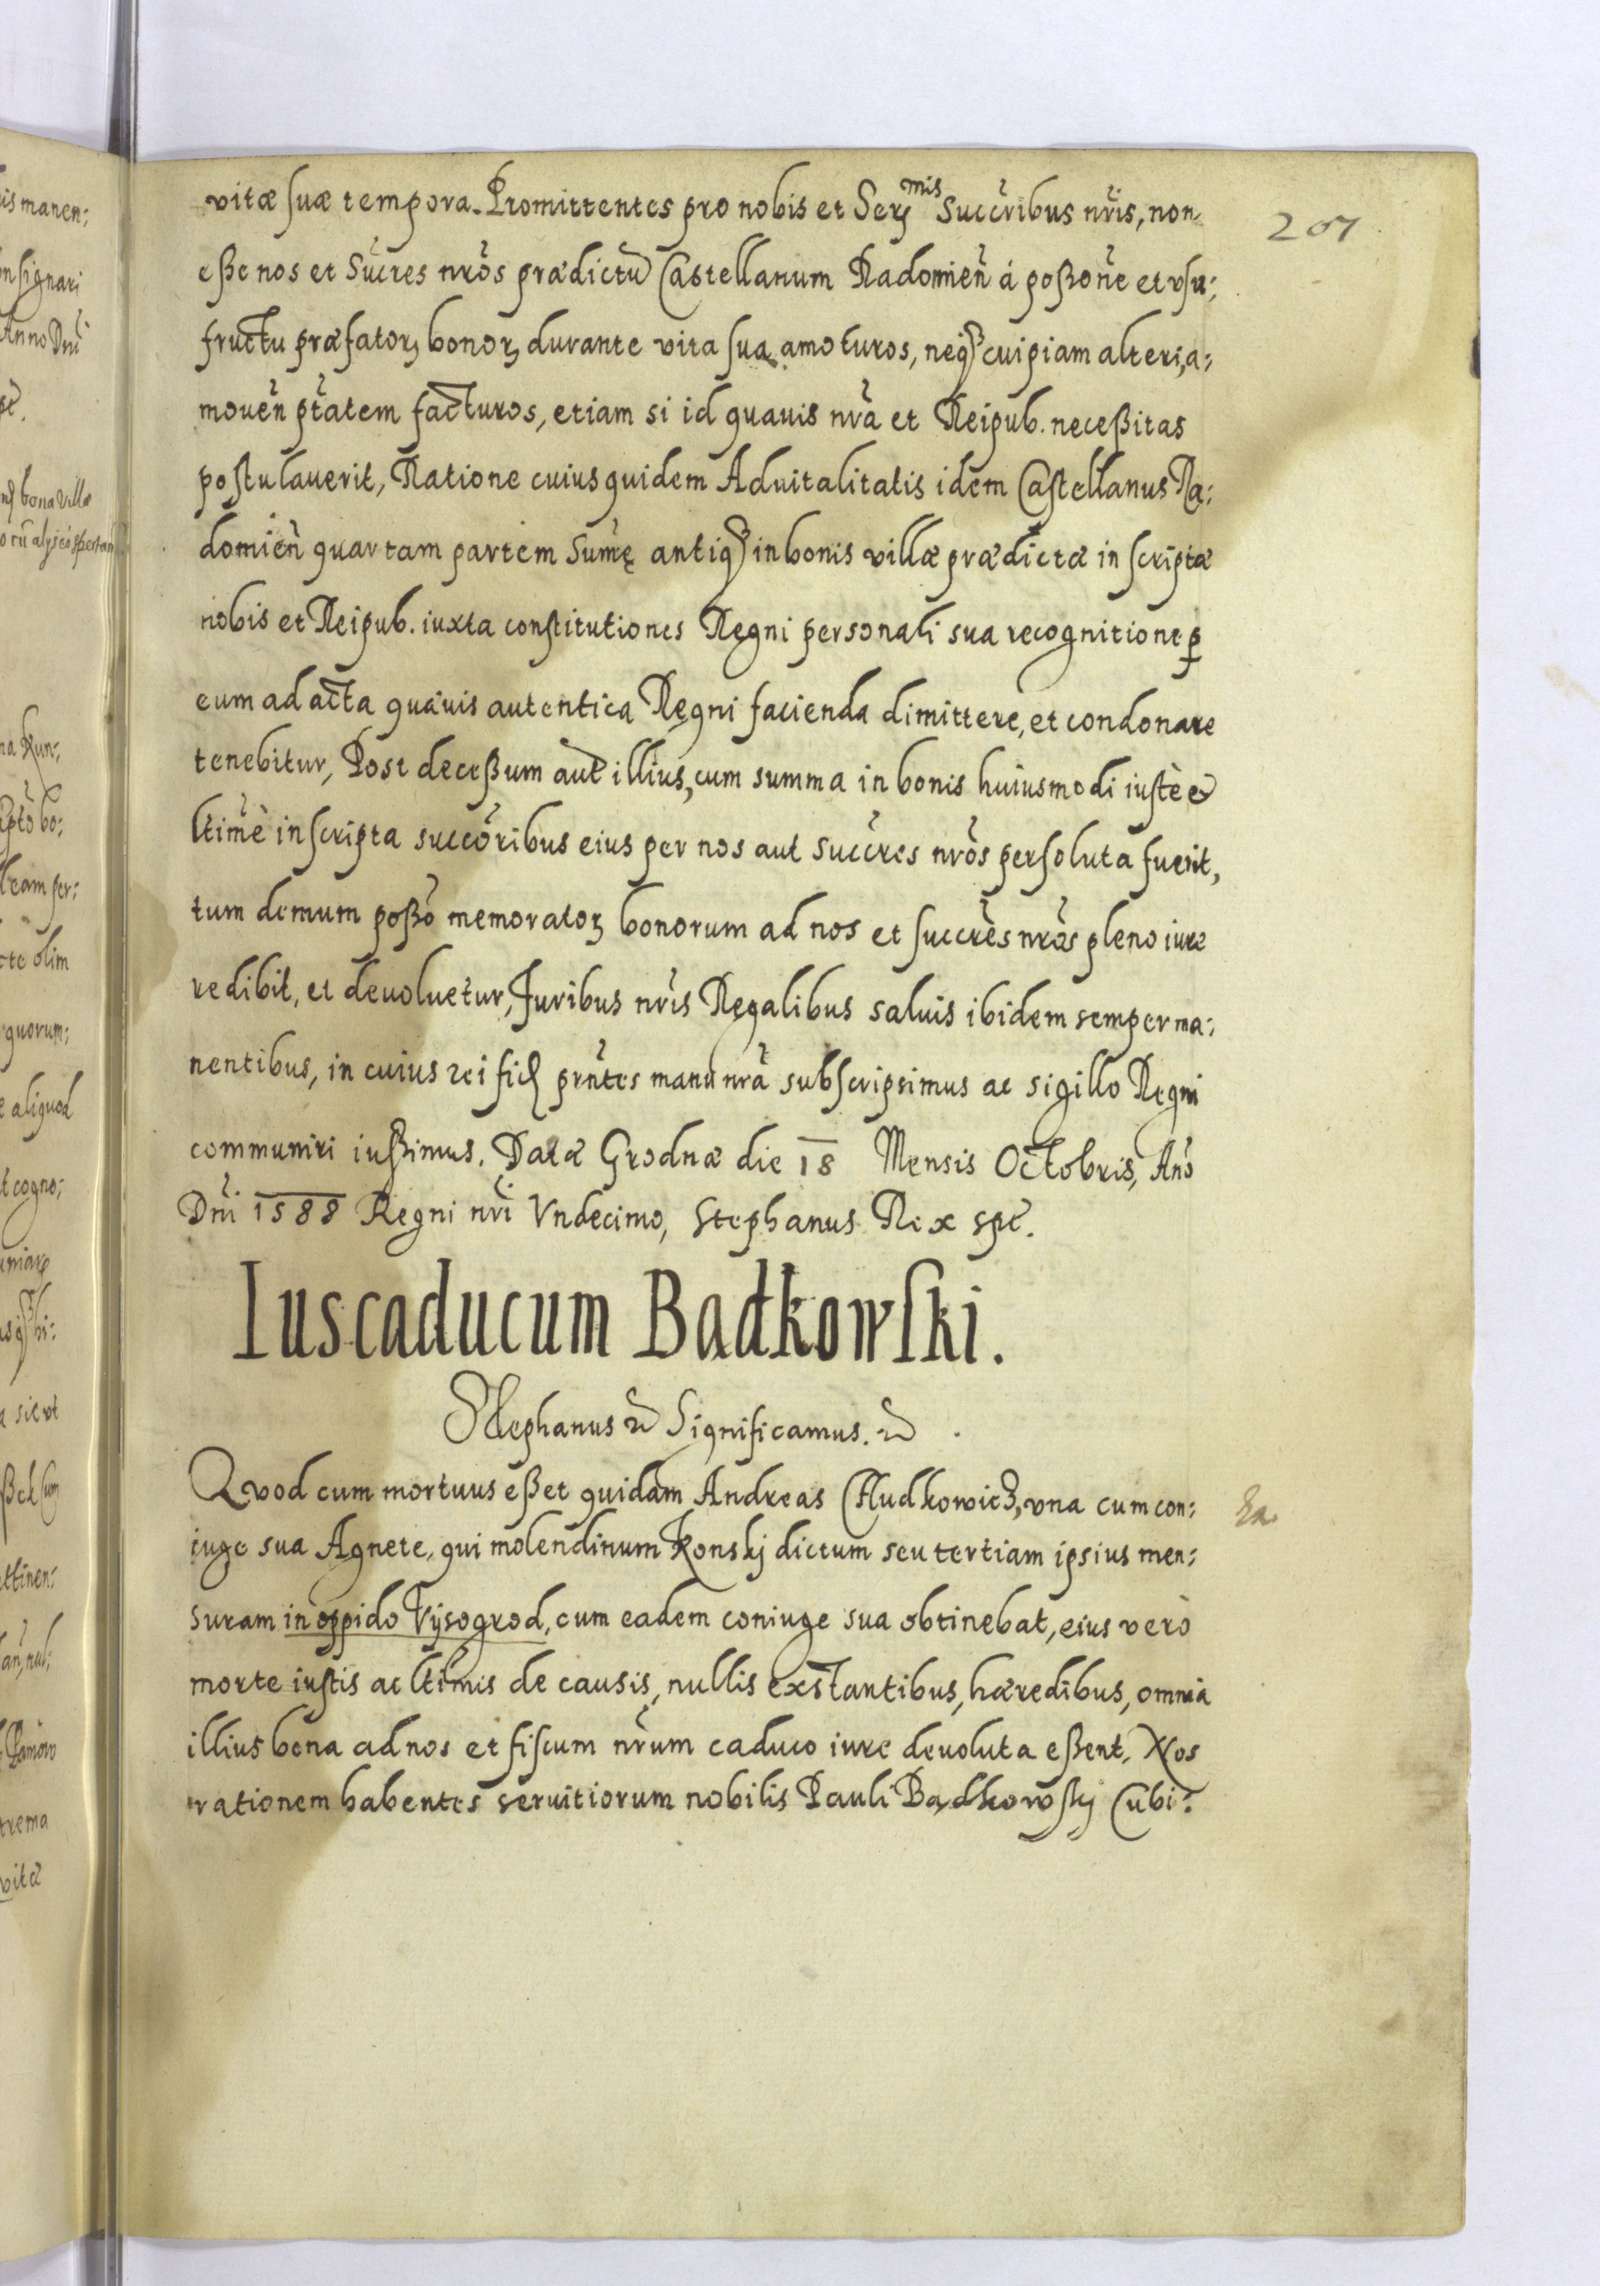 vitæ suæ tempora. Promittentes pro nobis et Ser mis Succribus nris, non
207
eße nos et Sucres nros prædictũ Castellanum Radomien̄ á poßone et vsu:
fructu præfator bonor durante vita sua amoturos, neq cuipiam alteri, a:
mouen ptatem facturos, etiam si id quauis nra et Reipub. neceßitas
postulauerit, Ratione cuius quidem Aduitalitatis idem Castellanus Ra:
domien quartam partem Sumę antiq in bonis villæ prædictæ inscriptæ
nobis et Reipub. iuxta constitutiones Regni personali sua recognitione p
eum ad acta quæuis autentica Regni facienda dimittere, et condonare
tenebitur, Post deceßum aut illius, cum summa in bonis huiusmodi iustè et
ltimè inscripta succoribus eius per nos aut Succres nros persoluta fuerit,
tum demum poßo memorator bonorum ad nos et succres nros pleno iure
redibit, et deuoluetur, Juribus nris Regalibus saluis ibidem semper ma:
nentibus, in cuius rei fid prntes manu nra subscripsimus ac sigillo Regni
communiri iußimus. Datæ Grodnæ die 18 Mensis Octobris, Ano
Dni 1588 Regni nri Vndecimo, Stephanus Rex spt.
Iuscaducum Badkowski.
Stephanus Significamus.
Quod cum mortuus eßet quidam Andreas Chudkowicz, vna cum con:
iuge sua Agnete, qui molendinum Konskj dictum seu tertiam ipsius men:
suram in oppido Vijsogrod, cum eadem coniuge sua obtinebat, eius verò
morte iustis ac ltimis de causis, nullis exstantibus, hæredibus, omnia
illius bona ad nos et fiscum nrum caduco iure deuoluta eßent. Nos
rationem habentes seruitiorum nobilis Pauli Badkowskj Cubi: